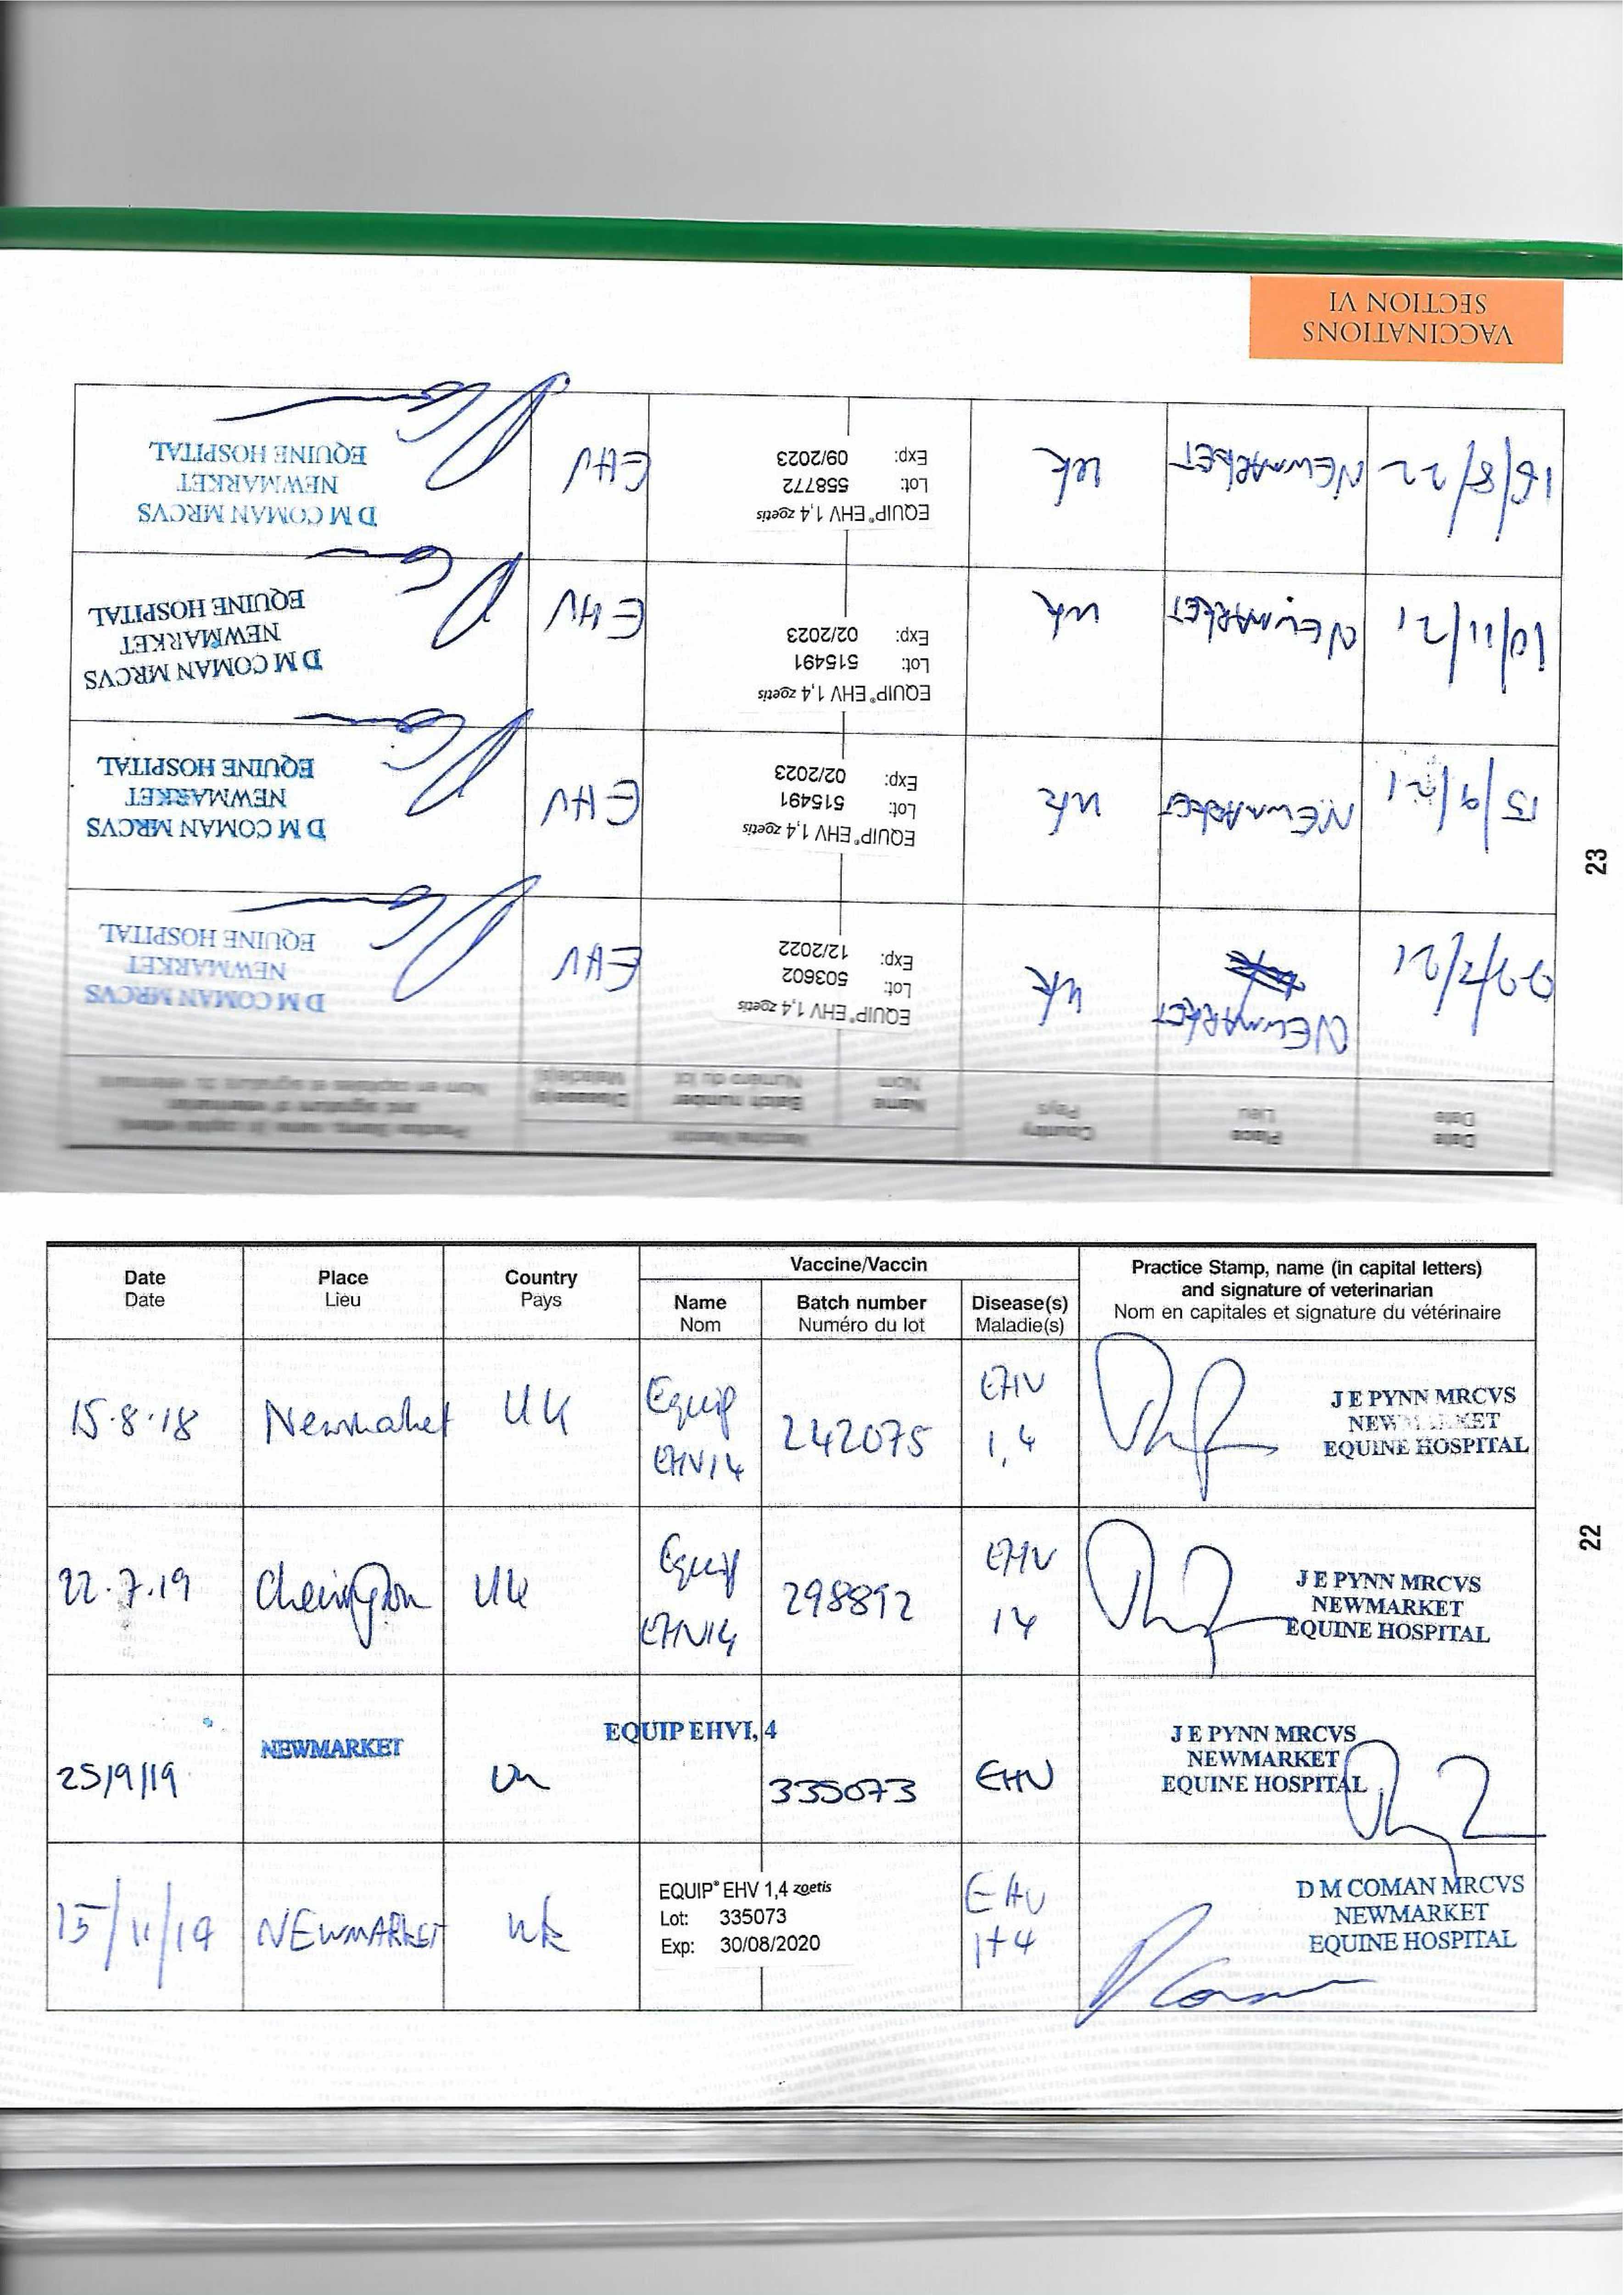 Date
Date
Place
Lieu
Country
Pays
Vaccine/Vaccin
Name
Nom
Batch number
Numéro du lot
Disease(s)
Maladie(s)
Practice Stamp, name (in capital letters)
and signature of veterinarian
Nom en capitales et signature du vétérinaire
15.8.18
Newmarket
UK
Equip
EHV14
242075
EHV
1,4
J E PYNN MRCVS
NEWMARKET
EQUINE HOSPITAL
22.7.19
Chevington
UK
Equip
EHV14
298892
EHV
14
J E PYNN MRCVS
NEWMARKET
EQUINE HOSPITAL
25/9/19
NEWMARKET
UK
EQUIP EHV1, 4
335073
EHV
J E PYNN MRCVS
NEWMARKET
EQUINE HOSPITAL
15/11/19
NEWMARKET
UK
EQUIP® EHV 1,4 zoetis
Lot: 335073
Exp: 30/08/2020
EHV
1+4
D M COMAN MRCVS
NEWMARKET
EQUINE HOSPITAL
22
Date
Date
Place
Lieu
Country
Pays
Vaccine/Vaccin
Name
Nom
Batch number
Numéro du lot
Disease(s)
Maladie(s)
Practice Stamp, name (in capital letters)
and signature of veterinarian
Nom en capitales et signature du vétérinaire
29/7/21
NEWMARKET
UK
EQUIP® EHV 1,4 zoetis
Lot: 503602
Exp: 12/2022
EHV
D M COMAN MRCVS
NEWMARKET
EQUINE HOSPITAL
15/9/21
NEWMARKET
UK
EQUIP® EHV 1,4 zoetis
Lot: 515491
Exp: 02/2023
EHV
D M COMAN MRCVS
NEWMARKET
EQUINE HOSPITAL
10/11/21
NEWMARKET
UK
EQUIP® EHV 1,4 zoetis
Lot: 515491
Exp: 02/2023
EHV
D M COMAN MRCVS
NEWMARKET
EQUINE HOSPITAL
16/8/22
NEWMARKET
UK
EQUIP® EHV 1,4 zoetis
Lot: 558772
Exp: 09/2023
EHV
D M COMAN MRCVS
NEWMARKET
EQUINE HOSPITAL
VACCINATIONS
SECTION VI
23